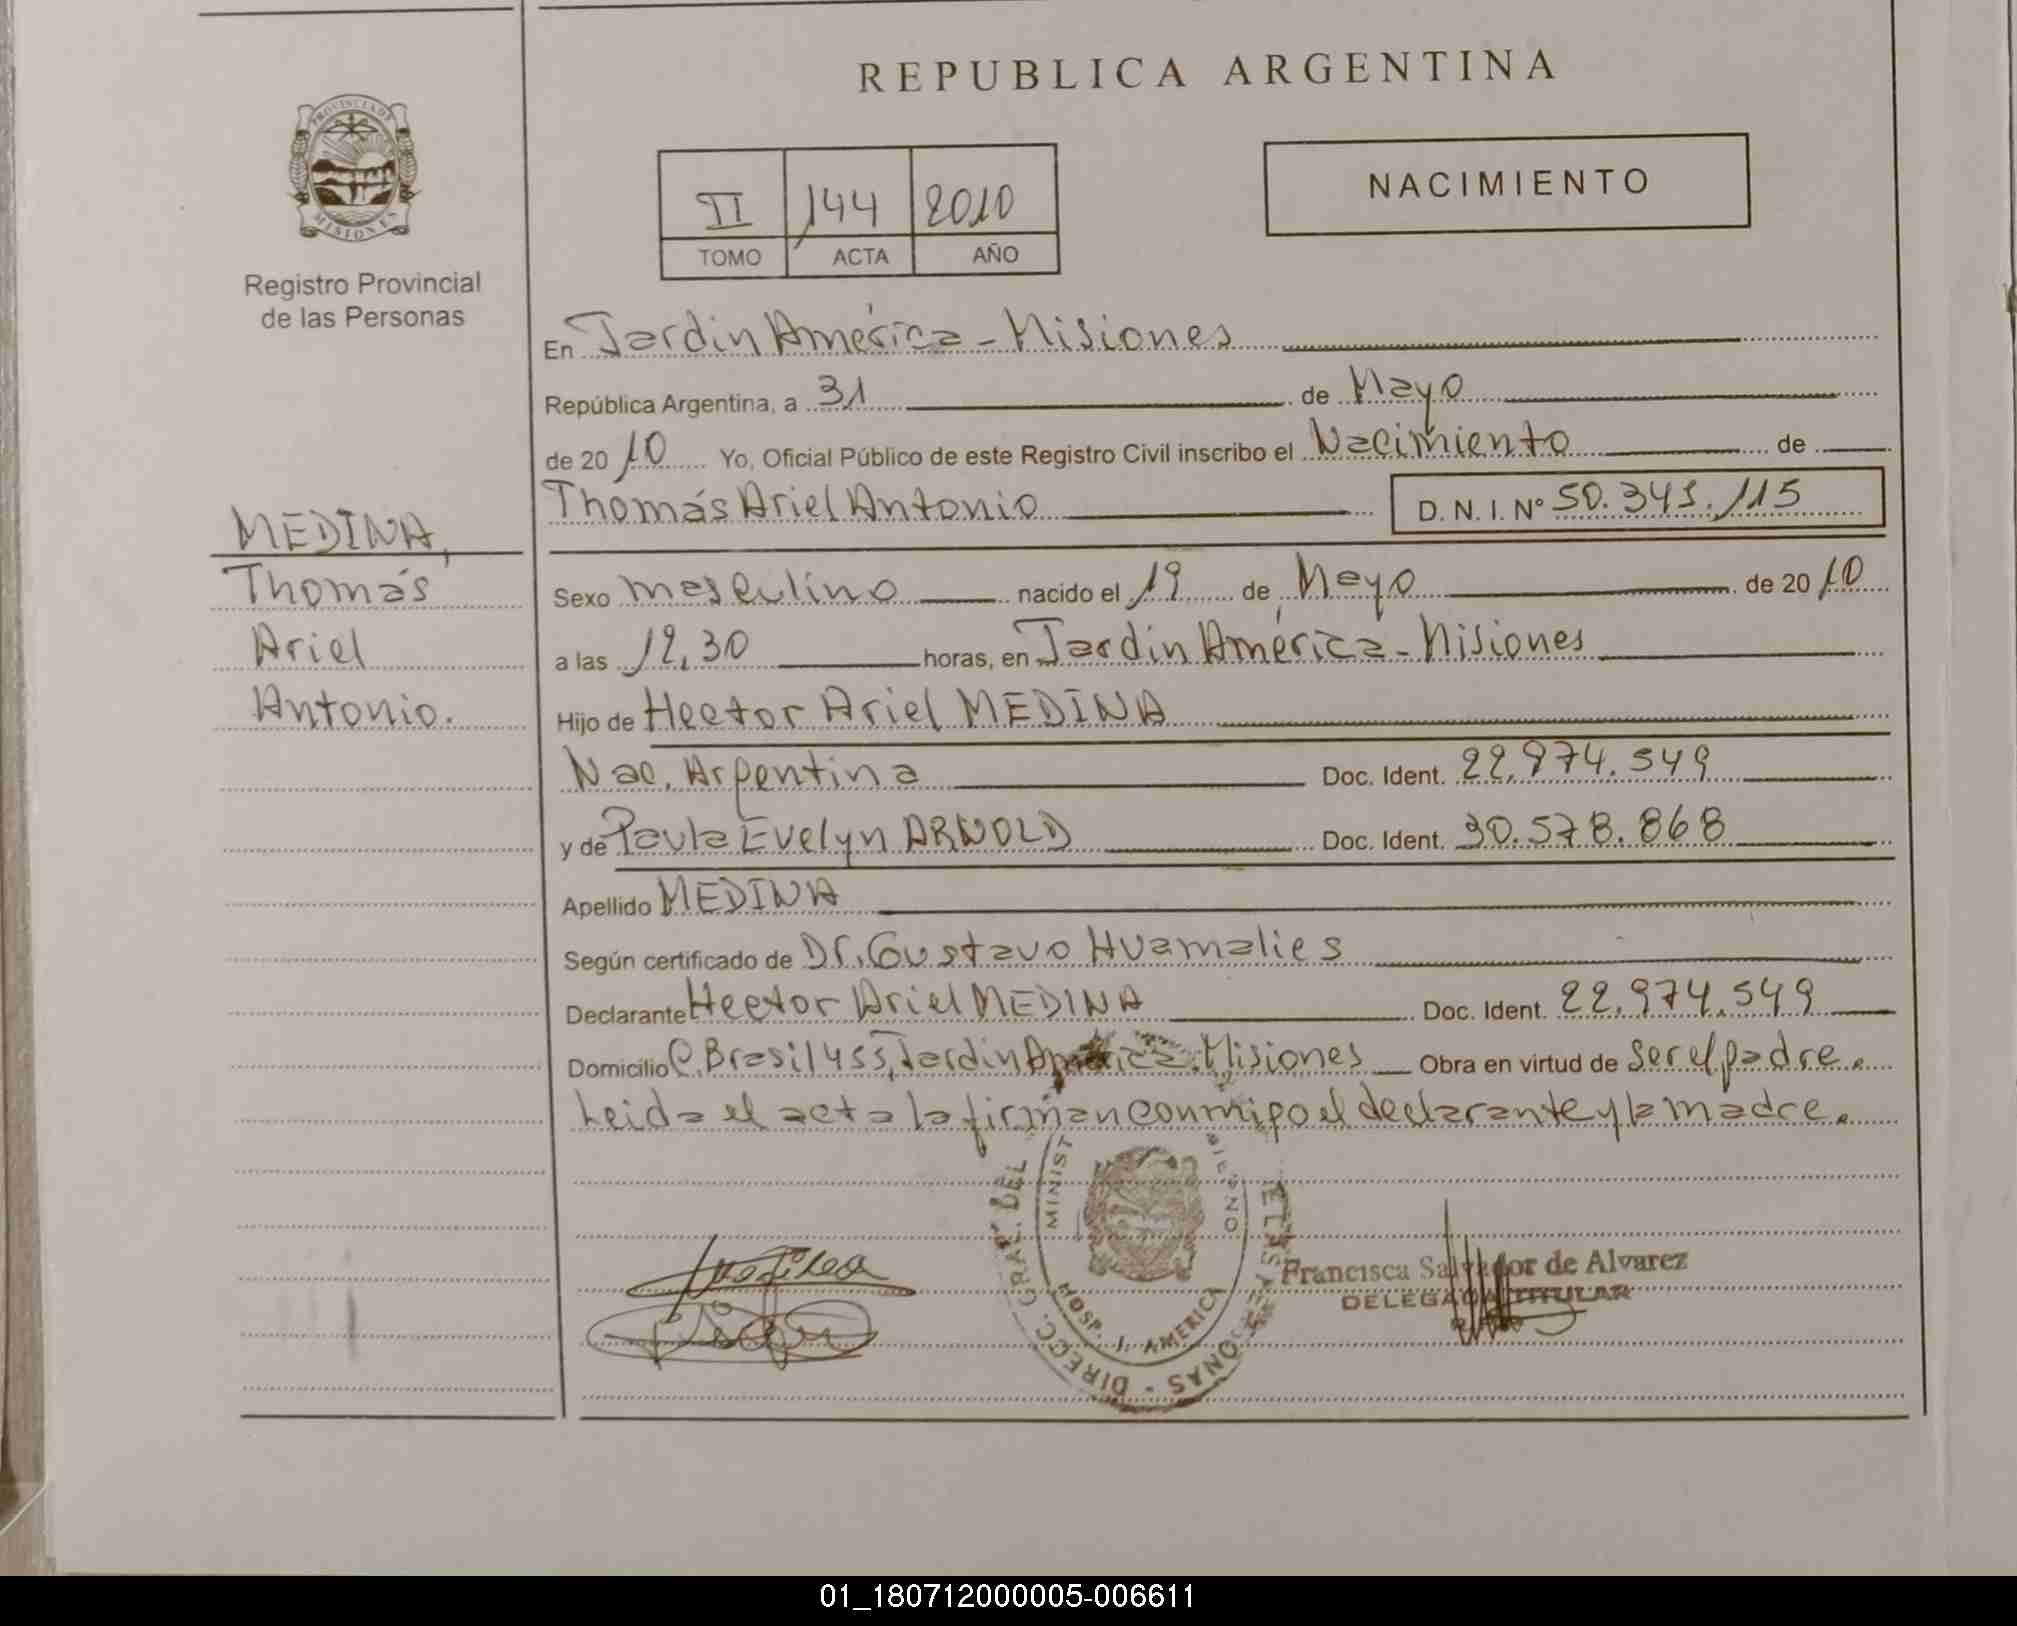 REPUBLICA ARGENTINA
PROVINCIA DE
MISIONES
Registro Provincial
de las Personas
II 144 2010
TOMO ACTA AÑO
NACIMIENTO
En Jardín América - Misiones
República Argentina, a 31 de Mayo
de 2010 Yo, Oficial Público de este Registro Civil inscribo el Nacimiento de
Thomás Ariel Antonio D. N. I. Nº 50.341.115
MEDINA,
Thomás
Ariel
Antonio.
Sexo masculino nacido el 19 de Mayo de 2010
a las 12,30 horas, en Jardín América - Misiones
Hijo de Hector Ariel MEDINA
Nac. Argentina Doc. Ident. 22.974.549
y de Paula Evelyn ARNOLD Doc. Ident. 30.578.868
Apellido MEDINA
Según certificado de Dr. Gustavo Huamalies
Declarante Hector Ariel MEDINA Doc. Ident. 22.974.549
Domicilio C. Brasil 455, Jardín América. Misiones Obra en virtud de ser el padre.
Leida el acta la firman conmigo el declarante y la madre.
DIRECC. GRAL. DEL
MINIST
HOSP. J. AMERICA
Francisca Salvador de Alvarez
DELEGADA TITULAR
01_180712000005-006611